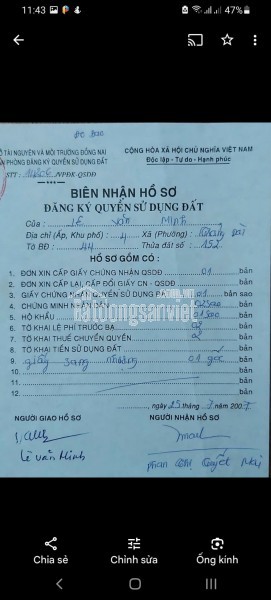 11:43
47%
SỞ TÀI NGUYÊN VÀ MÔI TRƯỜNG ĐỒNG NAI
PHÒNG ĐĂNG KÝ QUYỀN SỬ DỤNG ĐẤT
STT : /VPĐK-QSDĐ
CỘNG HÒA XÃ HỘI CHỦ NGHĨA VIỆT NAM
Độc lập - Tự do - Hạnh phúc
BIÊN NHẬN HỒ SƠ
ĐĂNG KÝ QUYỀN SỬ DỤNG ĐẤT
Của : Lê Văn Minh
Địa chỉ (Ấp, Khu phố) : 4 Xã (Phường)
Tờ BĐ : 44 Thửa đất số : 152
HỒ SƠ GỒM CÓ :
1. ĐƠN XIN CẤP GIẤY CHỨNG NHẬN QSDĐ 01 bản
2. ĐƠN XIN CẤP LẠI, CẤP ĐỔI GIẤY CN - QSDĐ bản
3. GIẤY CHỨNG NHẬN QUYỀN SỬ DỤNG ĐẤT 01 bản sao
4. CHỨNG MINH NHÂN DÂN bản
5. HỘ KHẨU bản
6. TỜ KHAI LỆ PHÍ TRƯỚC BẠ 02 bản
7. TỜ KHAI THUẾ CHUYỂN QUYỀN 2 bản
8. TỜ KHAI TIỀN SỬ DỤNG ĐẤT bản
9. giấy sang nhượng 01 gốc bản
10. bản
11. bản
12. bản
batdongsanviet
, ngày 25 tháng 7 năm 2007
NGƯỜI GIAO HỒ SƠ
NGƯỜI NHẬN HỒ SƠ
Lê Văn Minh
Chia sẻ
Chỉnh sửa
Ống kính